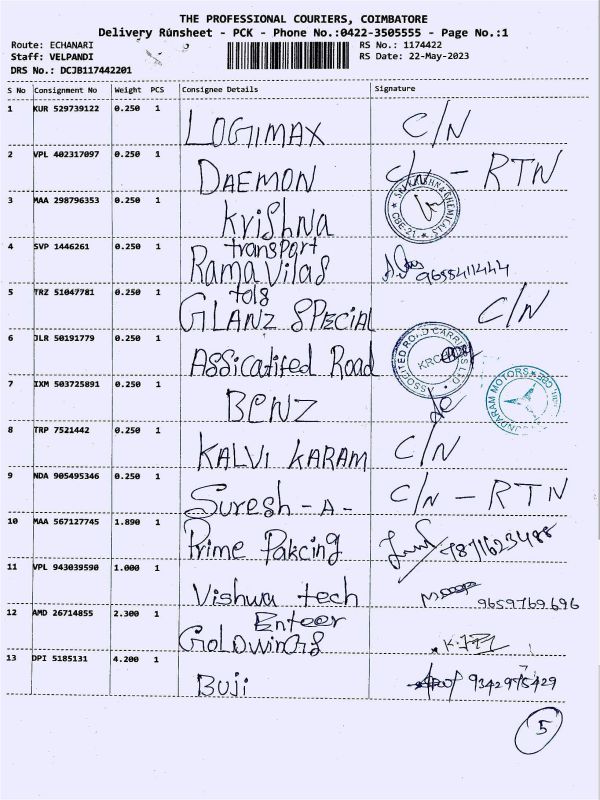 THE PROFESSIONAL COURIERS, COIMBATORE
Delivery Runsheet - PCK - Phone No.:0422-3505555 - Page No.:1
Route: ECHANARI RS No.: 1174422
Staff: VELPANDI RS Date: 22-May-2023
DRS No.: DCJB117442201
S No Consignment No Weight PCS Consignee Details Signature
1 KUR 529739122 0.250 1
LOGIMAX C/N
2 VPL 402317097 0.250 1
DAEMON C/N - RTN
3 MAA 298796353 0.250 1
Krishna
transport
4 SVP 1446261 0.250 1
Rama Vilas 9655411444
tols
5 TRZ 51047781 0.250 1
GLANZ SPECIAL C/N
6 JLR 50191779 0.250 1
Assicatifed Road
7 IXM 503725891 0.250 1
BENZ
8 TRP 7521442 0.250 1
KALVI KARAM C/N
9 NDA 905495346 0.250 1
Suresh - A - C/N - RTN
10 MAA 567127745 1.890 1
Prime Pakcing 7871623488
11 VPL 943039590 1.000 1
Vishwa tech 9659769696
12 AMD 26714855 2.300 1
Enteer
GOLDWINGS
13 DPI 5185131 4.200 1
Buji 9342975429
5